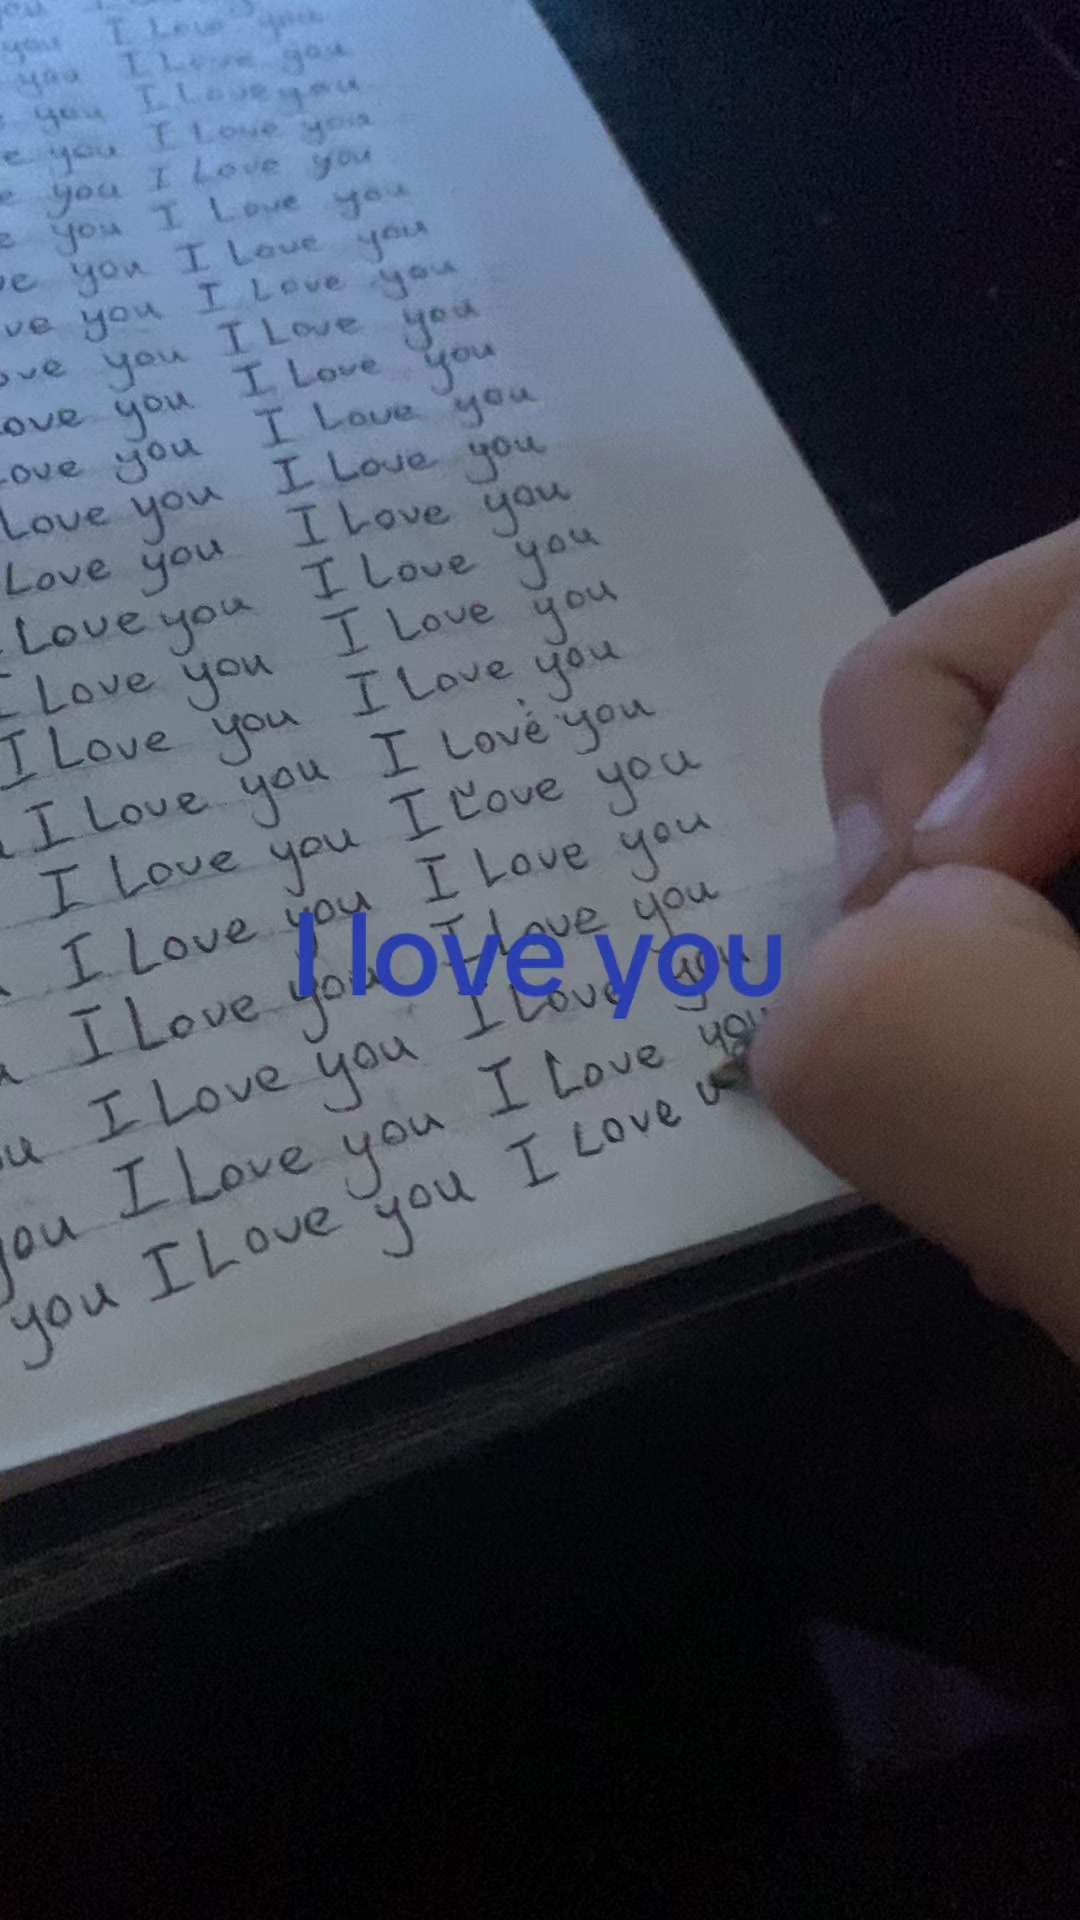 you I Love you
you I Love you
you I Love you
e you I Love you
e you I Love you
e you I Love you
ve you I Love you
ve you I Love you
ove you I Love you
Love you I Love you
Love you I Love you
Love you I Love you
Love you I Love you
I Love you I Love you
I Love you I Love you
I Love you I Love you
I Love you I Love you
I Love you I Love you
I Love you I Love you
I Love you I Love you
ou I Love you I Love you
you I Love you I Love you
you I Love you I Love
I love you